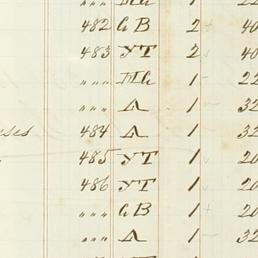 „ „ „ Mh 1 22
482 GB 2 + 40
483 YT 2 40
„ „ „ Mh 1 - 22
„ „ „ A 1 - 32
ses 484 A 1 32
485 YT 1 20
486 YT 1 20
„ „ „ GB 1 + 20
„ „ „ A 1 - 32